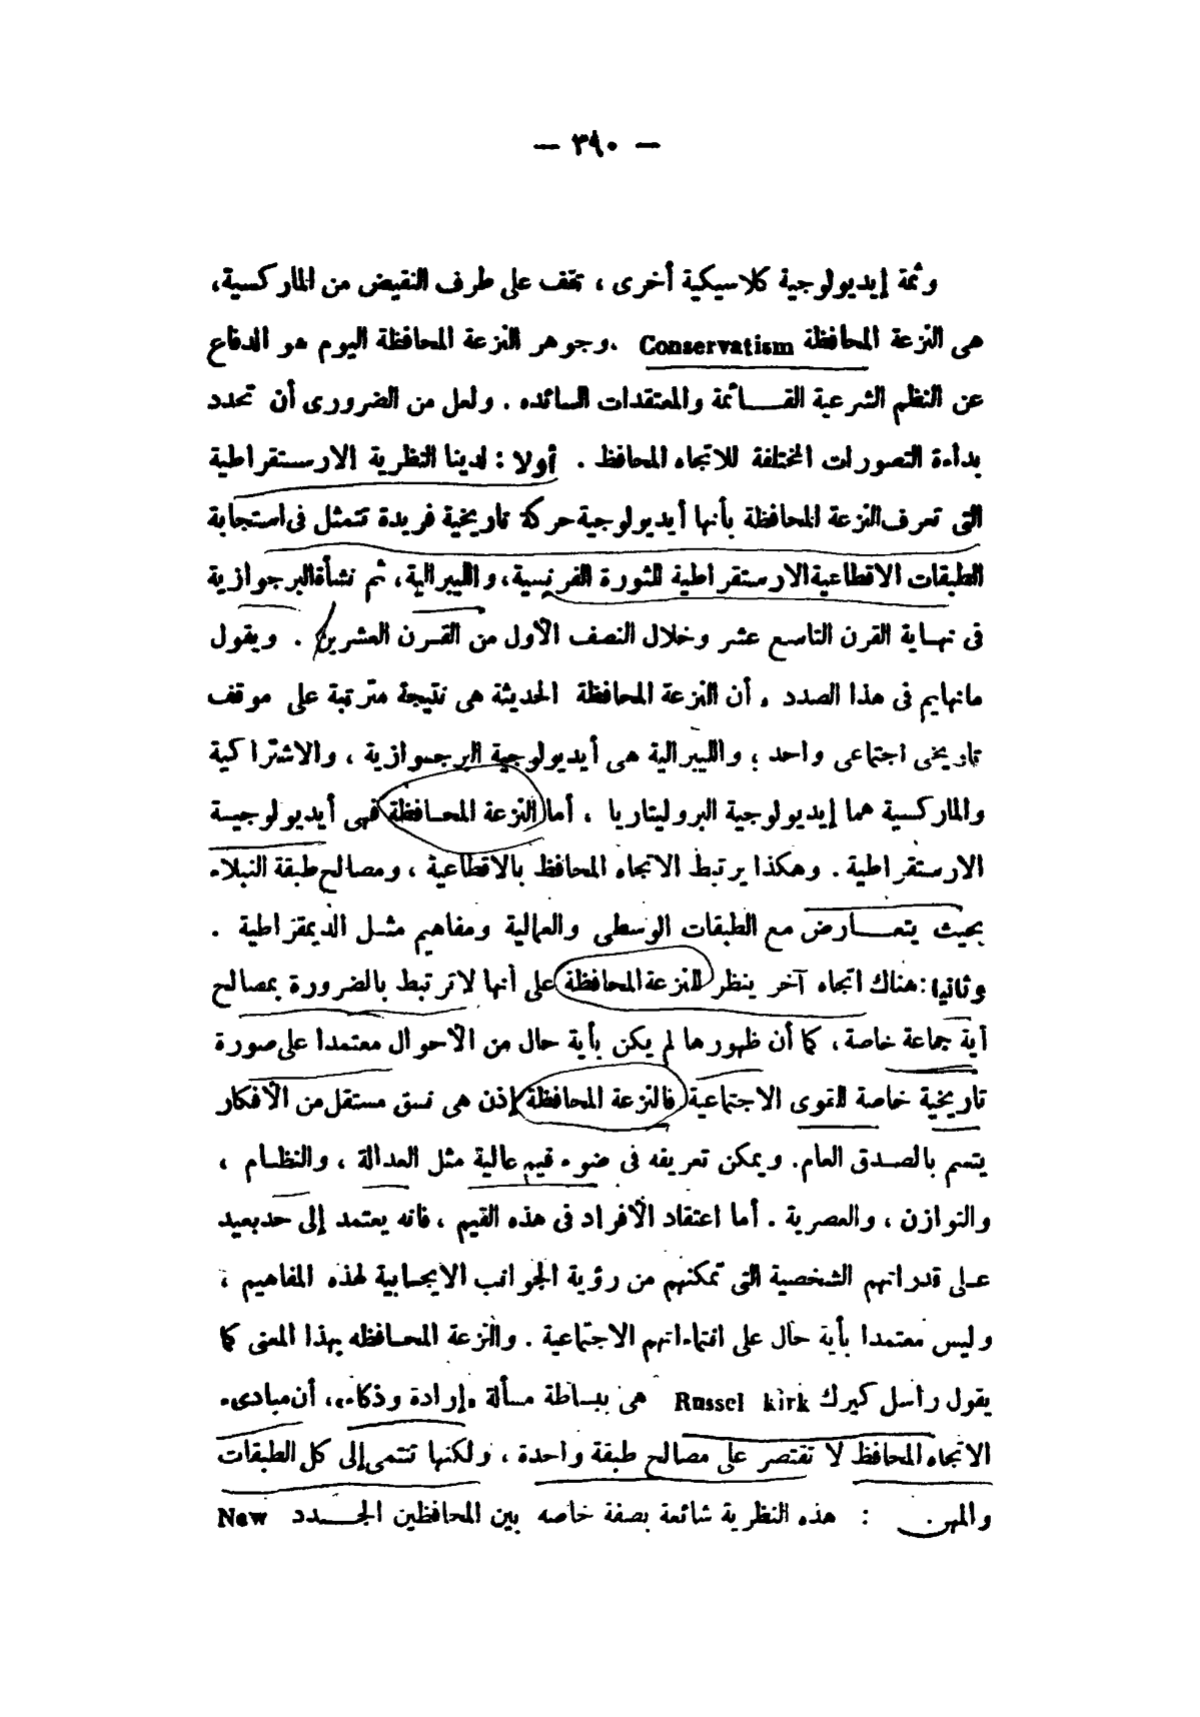 — ٣٩٠ —
وثمة إيديولوجية كلاسيكية أخرى ، تقف على طرف النقيض من الماركسية،
هى النزعة المحافظة Conservatism .وجوهر النزعة المحافظة اليوم هو الدفاع
عن النظم الشرعية القـــائمة والمعتقدات السائده . ولعل من الضرورى أن تحدد
بداءة التصورات المختلفة للاتجاه المحافظ . أولا : لدينا النظرية الارستقراطية
التى تعرف النزعة المحافظة بأنها أيديولوجية حركة تاريخية فريدة تتمثل فى استجابة
الطبقات الاقطاعية الارستقراطية للثورة الفرنسية، والليبرالية، ثم نشأة البرجوازية
فى نهـاية القرن التاسع عشر وخلال النصف الأول من القـرن العشرين . ويقول
مانهايم فى هذا الصدد , أن النزعة المحافظة الحديثة هى نتيجة مترتبة على موقف
تاريخى اجتماعى واحد ؛ والليبرالية هى أيديولوجية البرجـوازية ، والاشتراكية
والماركسية هما إيديولوجية البروليتاريا ، أما النزعة المحـافظة فهى أيديولوجيـة
الارستقراطية . وهكذا يرتبط الاتجاه المحافظ بالاقطاعية ، ومصالح طبقة النبلاء
بحيث يتعــارض مع الطبقات الوسطى والعمالية ومفاهيم مثـل الديمقراطية .
وثانيا : هناك اتجاه آخر ينظر للنزعة المحافظة على أنها لا ترتبط بالضرورة بمصالح
أية جماعة خاصة ، كما أن ظهورها لم يكن بأية حال من الأحوال معتمدا على صورة
تاريخية خاصة للقوى الاجتماعية فالنزعة المحافظة إذن هى نسق مستقل من الأفكار
يتسم بالصـدق العام. ويمكن تعريفه فى ضوء قيم عالية مثل العدالة ، والنظـام ،
والتوازن ، والعصرية . أما اعتقاد الأفراد فى هذه القيم ، فانه يعتمد إلى حد بعيد
عـلى قدراتهم الشخصية التى تمكنهم من رؤية الجوانب الايجـابية لهذه المفاهيم ،
وليس معتمدا بأية حال على انتماءاتهم الاجتماعية . والنزعة المحـافظه بهذا المعنى كما
يقول راسل كيرك Russel kirk هى ببساطة مسألة «إرادة وذكاء»، أن مبادىء
الاتجاه المحافظ لا تقتصر على مصالح طبقة واحدة ، ولكنها تنتمى إلى كل الطبقات
والمهن . : هذه النظرية شائعة بصفة خاصه بين المحافظين الجـــدد New